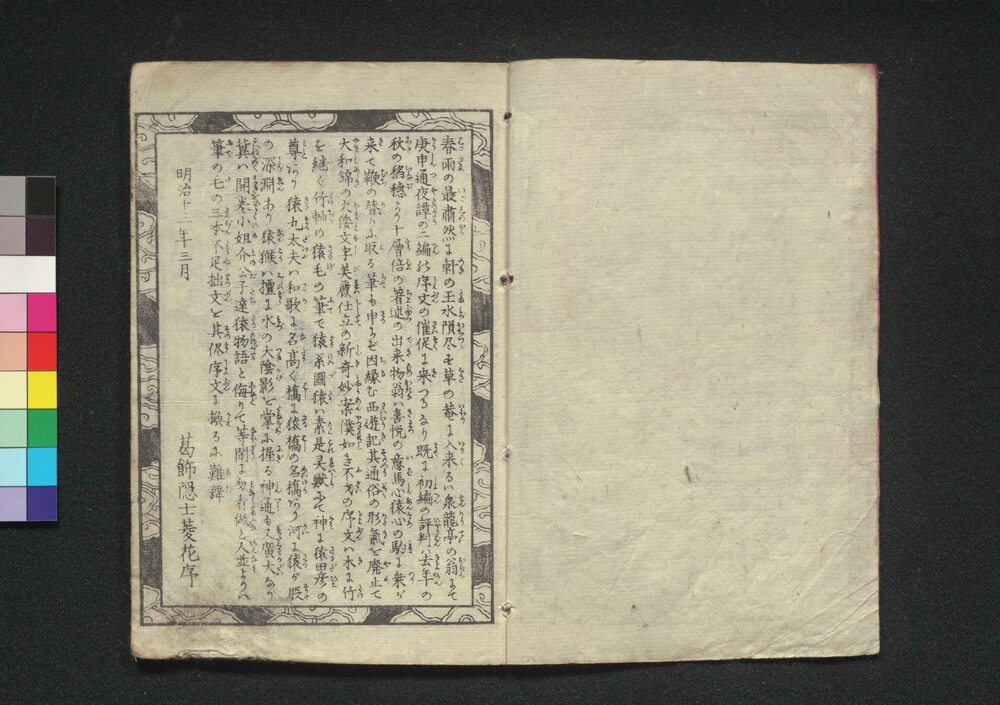 春雨の最肅然に軒の玉水隕尽す草の菴に入来るハ泉龍亭の翁にて
庚申通夜譚の二編の序文の催促に来つるなり既に初編の評判ハ去年の
秋の稲穂より十層倍の著述の出来物翁ハ喜悦の意馬心猿心の駒に乗が
来て鞭の替りに取る筆も申まで因縁む西遊記其通俗の形氣を廃止て
大和錦の大倭文字英戯仕立の新奇妙案僕如き不才の序文ハ木に竹
を継ぐ竹軸の猿毛の筆で猿系圖猿ハ素是灵獣にて神に猿田彦の
尊あり猿丸太夫ハ和歌に名高く橋に猿橋の名橋あり河に猿が股
の深淵あり猿猴ハ擅に水の大陰影を掌に握る神通も又廣大なり
冀ハ開巻小姐介公子達猿物語と侮りて等閑に勿看做と人並よりハ
筆の毛の三本不足拙文を其侭序文に換るに難
明治十二年三月
葛飾隠士菱花序